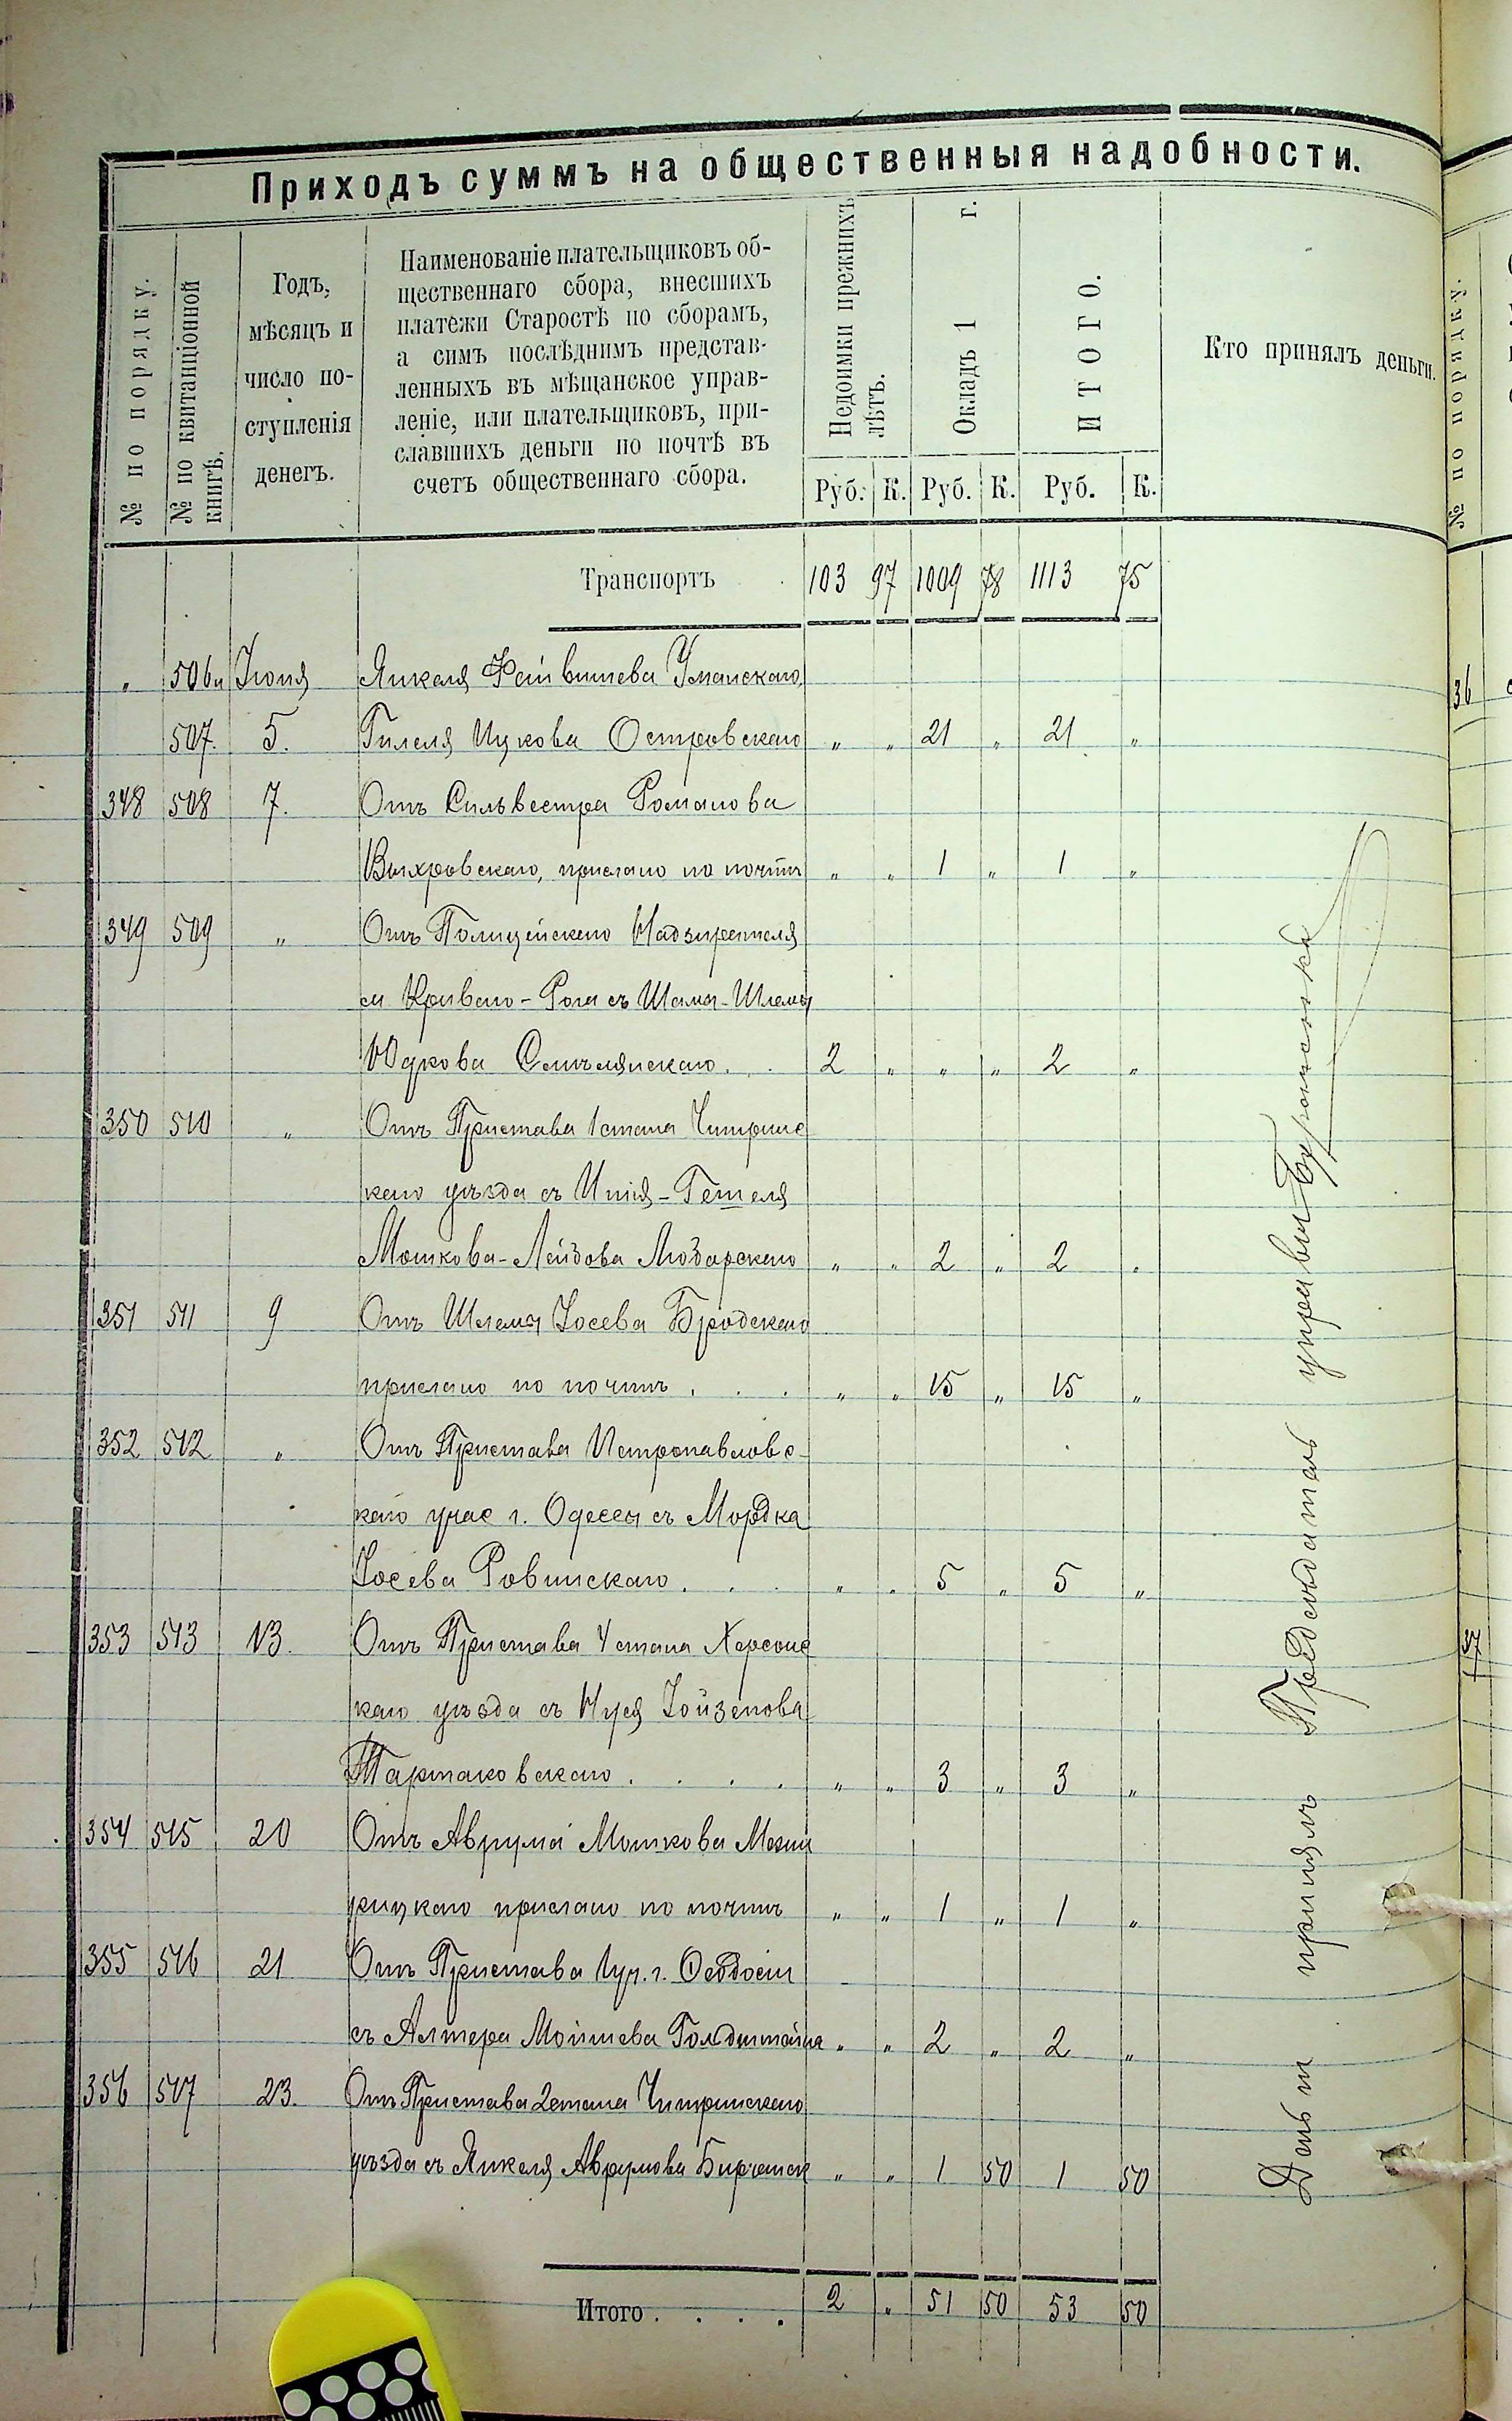 Приходъ суммъ на общественныя надобности.
№ по порядку.
№ по квитанціонной
книгѣ.
Годъ,
мѣсяцъ и
число по-
ступленія
денегъ.
Наименованіе плательщиковъ об-
щественнаго сбора, внесшихъ
платежи Старостѣ по сборамъ,
а симъ послѣднимъ представ-
ленныхъ въ мѣщанское управ-
леніе, или плательщиковъ, при-
славшихъ деньги по почтѣ въ
счетъ общественнаго сбора.
Недоимки прежнихъ
лѣтъ.
Окладъ 1 г.
ИТОГО.
Кто принялъ деньги.
Руб. К. Руб. К. Руб. К.
Транспортъ 103 97 1009 78 1113 75
" 506 и Іюня Янкеля Файвишева Уманскаго
507. 5. Гилеля Ицкова Островскаго " " 21 " 21 "
348 508 7. Отъ Сильвестра Романова
Выхровскаго, прислано по почтѣ " " 1 " 1 "
349 509 " Отъ Полицейскаго Надзирателя
м Криваго-Рога съ Шама-Шлемы
Юдкова Смѣлянскаго. . 2 " " " 2 "
350 510 " Отъ Пристава 1 стана Чигринс
каго уѣзда съ
Мошкова-Лейбова " " 2 " 2 "
351 511 9 Отъ Шлемы Іосева Бродскаго
прислано по почтѣ . . . " " 15 " 15 "
352 512 " Отъ Пристава Петропавловс-
каго учас г. Одессы съ Мордка
Іосева Ровинскаго. . . " " 5 " 5 "
353 513 13. Отъ Пристава 4 стана Херсонс
каго уѣзда съ Нуся Іойзенова
Тартаковскаго . . . . " " 3 " 3 "
354 515 20 Отъ Аврума Мошкова Межи
рицкаго прислано по почтѣ " " 1 " 1 "
355 516 21 Отъ Пристава 1 уч. г. Ѳеодосіи
съ Алтера Мойшева Голдштейна " " 2 " 2 "
356 517 23. Отъ Пристава 2 стана Чигринскаго
уѣзда съ Янкеля Аврумова " " 1 50 1 50
Итого . . . . 2 " 51 50 53 50
Деньги принялъ Предсѣдатель управы
№ по порядку.
36
37